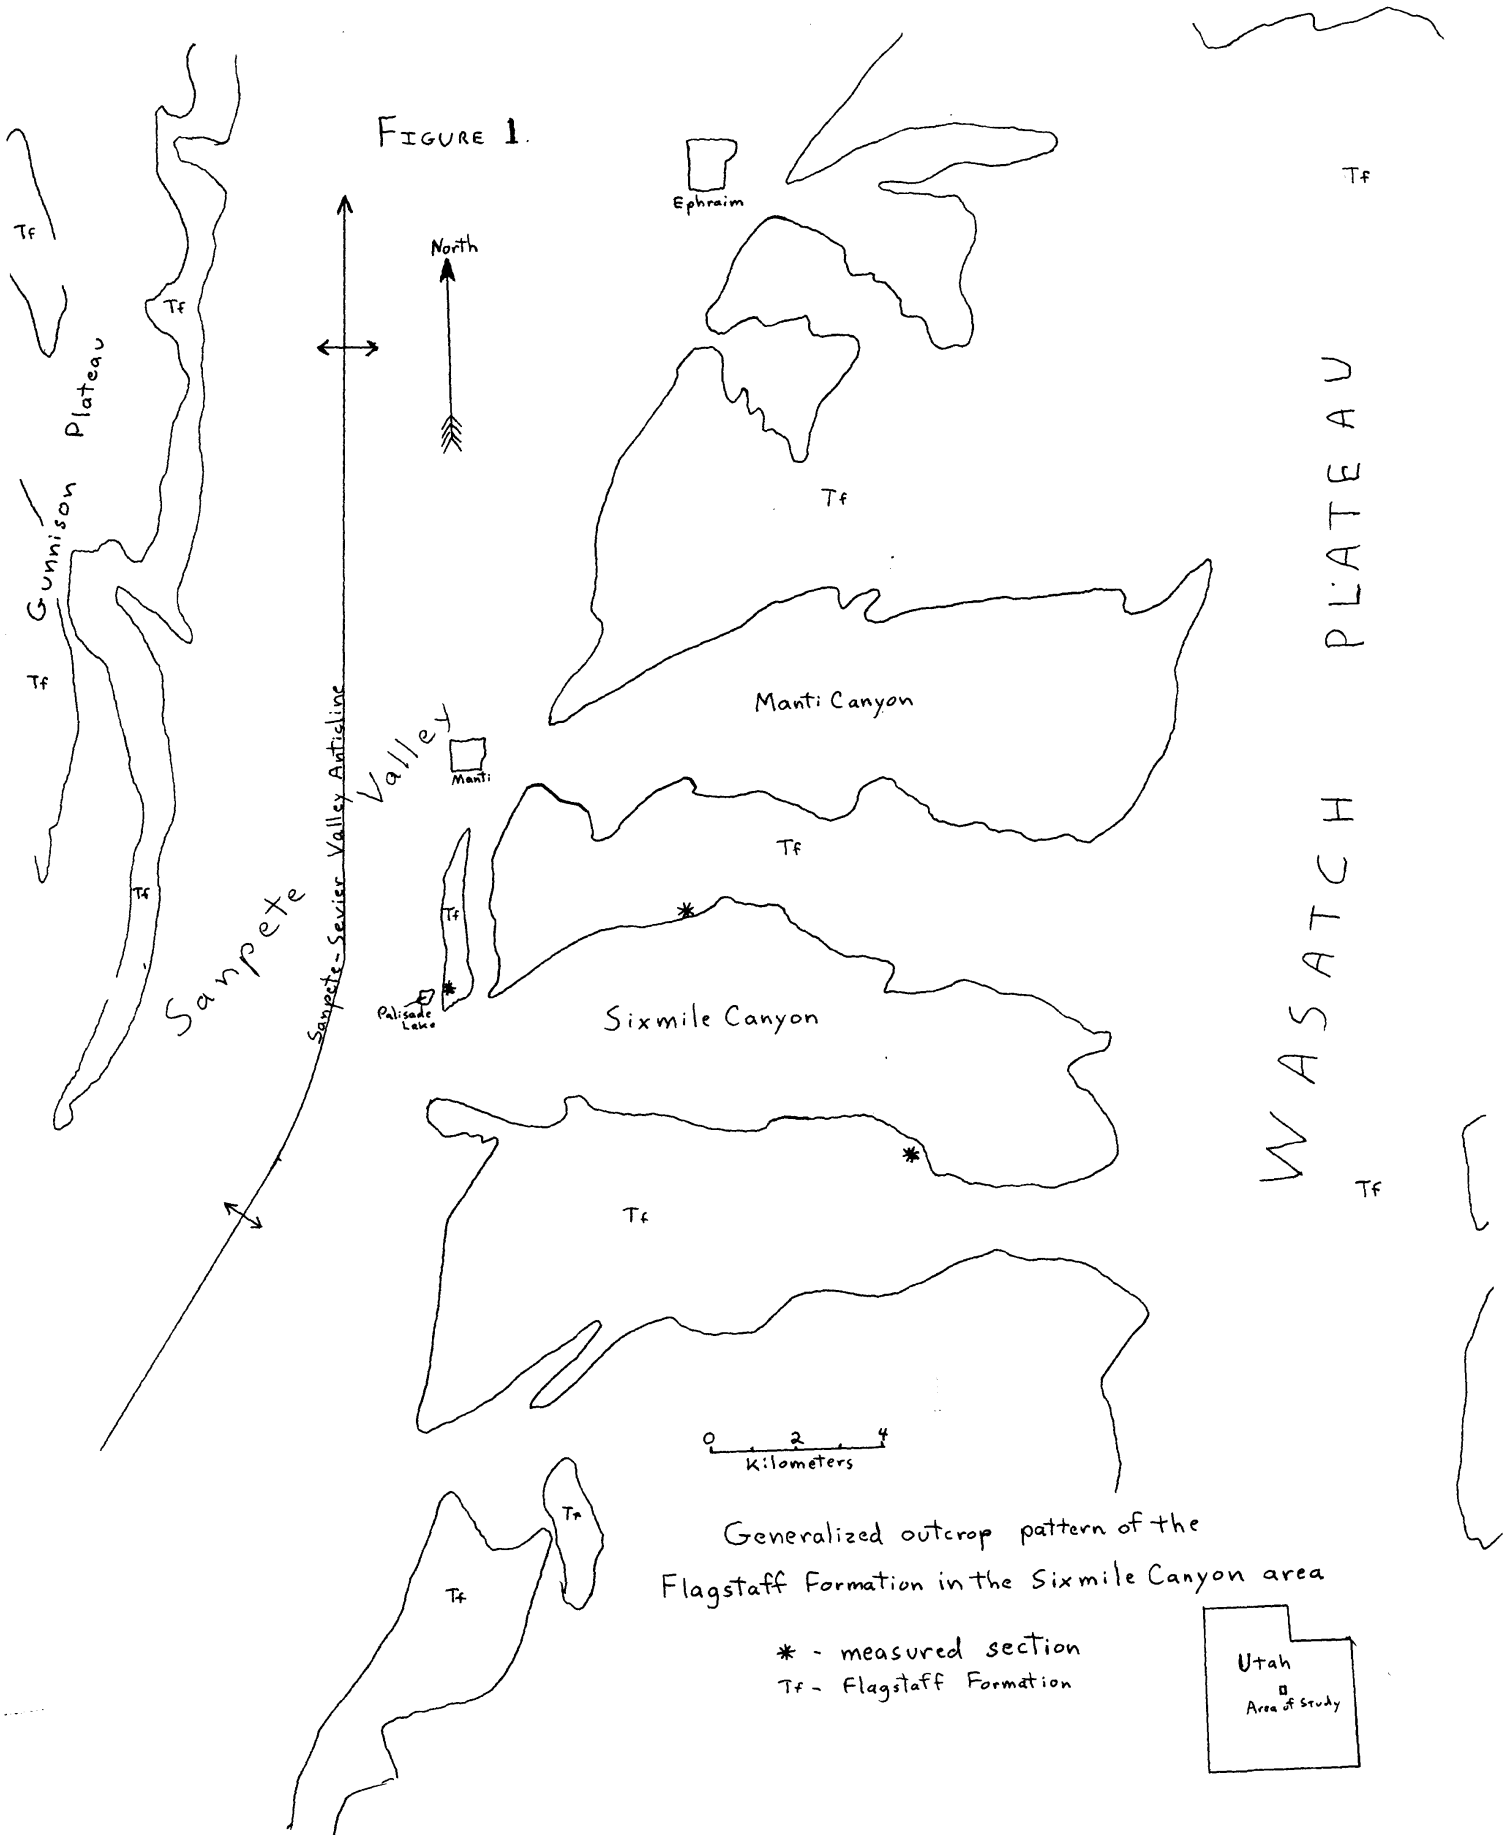 FIGURE 1.
Ephraim
Tf
Tf
North
Tf
Gunnison Plateau
Tf
WASATCH PLATEAU
Tf
Manti Canyon
Sanpete Valley
Manti
Sanpete-Sevier Valley Anticline
Tf
Tf
Tf
Palisade
Lake
Sixmile Canyon
Tf
Tf
0 2 4
Kilometers
Tf
Tf
Generalized outcrop pattern of the
Flagstaff Formation in the Sixmile Canyon area
* - measured section
Tf - Flagstaff Formation
Utah
Area of Study